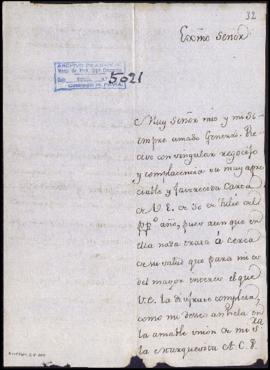 32
Exmo Señor
ARCHIVO
5021
Muy Señor mio y mi si=
empre amado General: Re=
civo con singular regocijo
y complacencia su muy apre=
ciable y favorecida Carta
de V.E. de 30 de Julio del
ppº año, pues aunque en
ella nada trata á cerca
de su salud que para mi es
del mayor interes el que
V.E. la disfrute completa,
como mi deseo anhela en
la amable union de mi Sra
la Marquesita A.C.P.